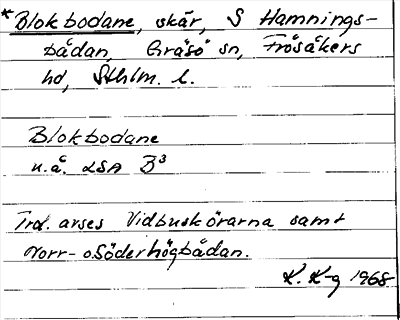 *Blokbodane, skär, S Hamnings-
bådan, Gräsö sn, Frösåkers
hd, Sthlm. l.
Blokbodane
u.å. LSA B³
Trol. avses Vidbuskörarna samt
Norr- o. Söderhögbådan.
K. K-g 1968